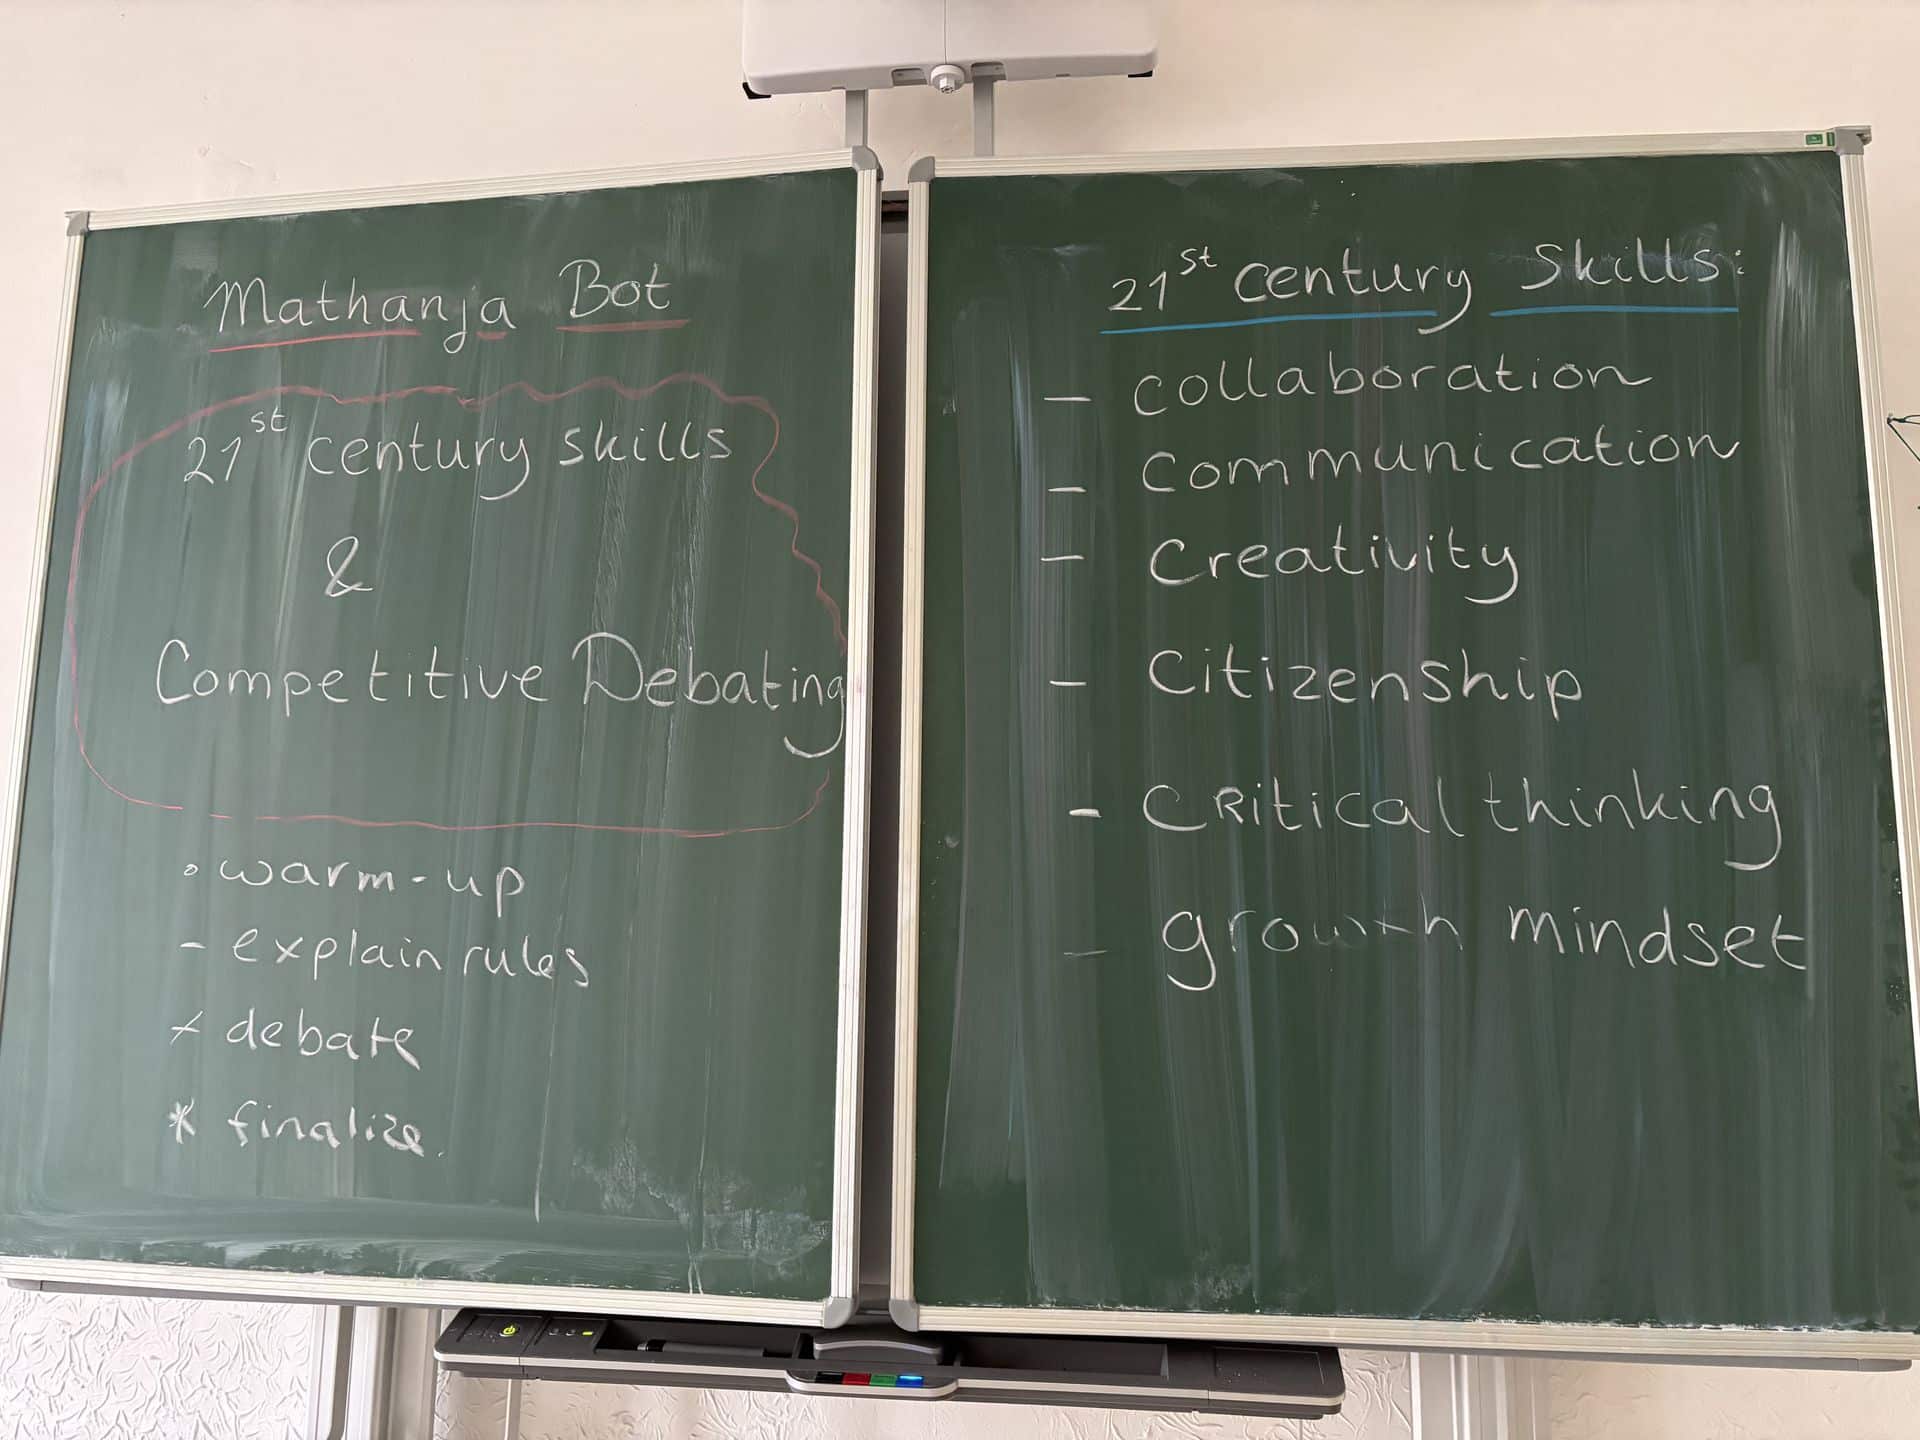 Mathanja Bot
21st century skills
&
Competitive Debating
∘ warm-up
- explain rules
+ debate
* finalize.
21st century Skills:
- collaboration
- communication
- Creativity
- Citizenship
- CRitical thinking
- growth mindset